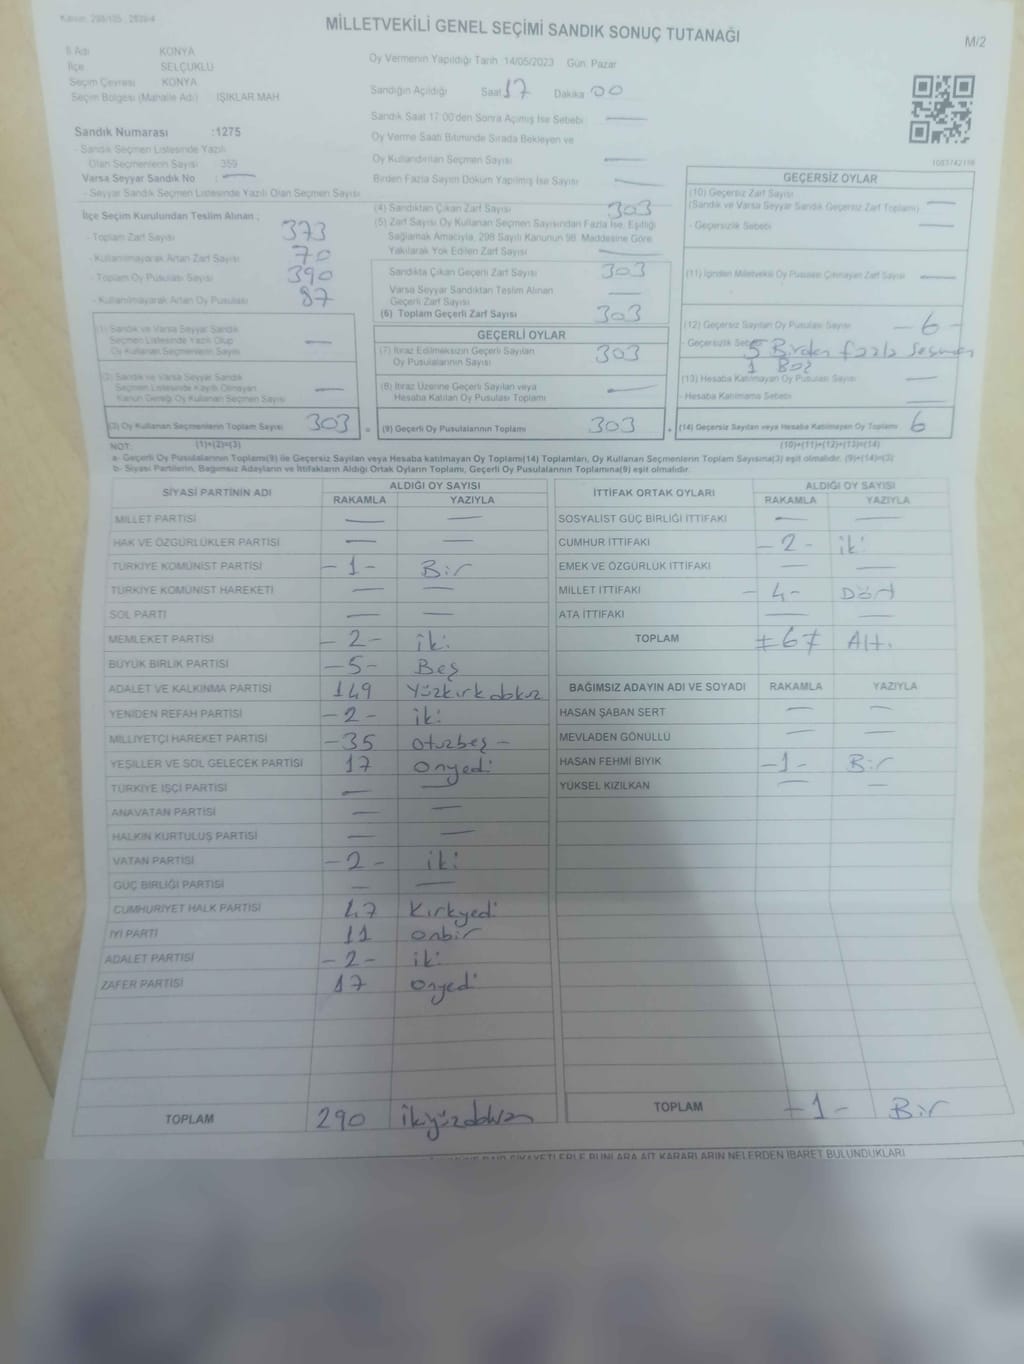 MİLLETVEKİLİ GENEL SEÇİMİ SANDIK SONUÇ TUTANAĞI
M/2
İl Adı KONYA
İlçe SELÇUKLU
Seçim Çevresi KONYA
Seçim Bölgesi (Mahalle Adı) IŞIKLAR MAH
Oy Vermenin Yapıldığı Tarih 14/05/2023 Gün: Pazar
Sandığın Açıldığı Saat 17 Dakika 00
Sandık Saat 17:00'den Sonra Açımış İse Sebebi
Oy Verme Saati Bitiminde Sırada Bekleyen ve
Oy Kullandırılan Seçmen Sayısı
Birden Fazla Sayım Döküm Yapılmış İse Sayısı
Sandık Numarası :1275
- Sandık Seçmen Listesinde Yazılı
Olan Seçmenlerin Sayısı : 359
Varsa Seyyar Sandık No :
- Seyyar Sandık Seçmen Listesinde Yazılı Olan Seçmen Sayısı
İlçe Seçim Kurulundan Teslim Alınan ;
- Toplam Zarf Sayısı 373
- Kullanılmayarak Artan Zarf Sayısı 70
- Toplam Oy Pusulası Sayısı 390
- Kullanılmayarak Artan Oy Pusulası 87
(1) Sandık ve Varsa Seyyar Sandık
Seçmen Listesinde Yazılı Olup
Oy Kullanan Seçmenlerin Sayısı
(2) Sandık ve Varsa Seyyar Sandık
Seçmen Listesinde Kayıtlı Olmayan
Kanun Gereği Oy Kullanan Seçmen Sayısı
(3) Oy Kullanan Seçmenlerin Toplam Sayısı 303
(1)+(2)=(3)
(4) Sandıktan Çıkan Zarf Sayısı 303
(5) Zarf Sayısı Oy Kullanan Seçmen Sayısından Fazla İse, Eşitliği
Sağlamak Amacıyla, 298 Sayılı Kanunun 98. Maddesine Göre
Yakılarak Yok Edilen Zarf Sayısı
Sandıkta Çıkan Geçerli Zarf Sayısı 303
Varsa Seyyar Sandıktan Teslim Alınan
Geçerli Zarf Sayısı
(6) Toplam Geçerli Zarf Sayısı 303
GEÇERLİ OYLAR
(7) İtiraz Edilmeksizin Geçerli Sayılan
Oy Pusulalarının Sayısı 303
(8) İtiraz Üzerine Geçerli Sayılan veya
Hesaba Katılan Oy Pusulası Toplamı
(9) Geçerli Oy Pusulalarının Toplamı 303
GEÇERSİZ OYLAR
(10) Geçersiz Zarf Sayısı
(Sandık ve Varsa Seyyar Sandık Geçersiz Zarf Toplamı)
- Geçersizlik Sebebi
(11) İçinden Milletvekili Oy Pusulası Çıkmayan Zarf Sayısı
(12) Geçersiz Sayılan Oy Pusulası Sayısı - 6 -
- Geçersizlik Sebebi 5 Birden fazla seçmen
1 Boş
(13) Hesaba Katılmayan Oy Pusulası Sayısı
- Hesaba Katılmama Sebebi
(14) Geçersiz Sayılan veya Hesaba Katılmayan Oy Toplamı 6
(10)+(11)+(12)+(13)=(14)
NOT:
a- Geçerli Oy Pusulasının Toplamı(9) ile Geçersiz Sayılan veya Hesaba katılmayan Oy Toplamı(14) Toplamları, Oy Kullanan Seçmenlerin Toplam Sayısına(3) eşit olmalıdır. (9)+(14)=(3)
b- Siyasi Partilerin, Bağımsız Adayların ve İttifakların Aldığı Ortak Oyların Toplamı, Geçerli Oy Pusulalarının Toplamına(9) eşit olmalıdır.
SİYASİ PARTİNİN ADI ALDIĞI OY SAYISI
RAKAMLA YAZIYLA
MİLLET PARTİSİ
HAK VE ÖZGÜRLÜKLER PARTİSİ
TÜRKİYE KOMÜNİST PARTİSİ - 1 - Bir
TÜRKİYE KOMÜNİST HAREKETİ
SOL PARTİ
MEMLEKET PARTİSİ - 2 - iki
BÜYÜK BİRLİK PARTİSİ - 5 - Beş
ADALET VE KALKINMA PARTİSİ 149
YENİDEN REFAH PARTİSİ - 2 - iki
MİLLİYETÇİ HAREKET PARTİSİ - 35 otuzbeş -
YEŞİLLER VE SOL GELECEK PARTİSİ 17 onyedi
TÜRKİYE İŞÇİ PARTİSİ
ANAVATAN PARTİSİ
HALKIN KURTULUŞ PARTİSİ
VATAN PARTİSİ - 2 - iki
GÜÇ BİRLİĞİ PARTİSİ
CUMHURİYET HALK PARTİSİ 47 Kırkyedi
İYİ PARTİ 11 onbir
ADALET PARTİSİ - 2 - iki
ZAFER PARTİSİ 17 onyedi
TOPLAM 290
İTTİFAK ORTAK OYLARI ALDIĞI OY SAYISI
RAKAMLA YAZIYLA
SOSYALİST GÜÇ BİRLİĞİ İTTİFAKI
CUMHUR İTTİFAKI - 2 - iki
EMEK VE ÖZGÜRLÜK İTTİFAKI
MİLLET İTTİFAKI - 4 - Dört
ATA İTTİFAKI
TOPLAM 6 Altı
BAĞIMSIZ ADAYIN ADI VE SOYADI RAKAMLA YAZIYLA
HASAN ŞABAN SERT
MEVLADEN GÖNÜLLÜ
HASAN FEHMİ BIYIK - 1 - Bir
YÜKSEL KIZILKAN
TOPLAM - 1 - Bir
KARARLARIN NELERDEN İBARET BULUNDUKLARI